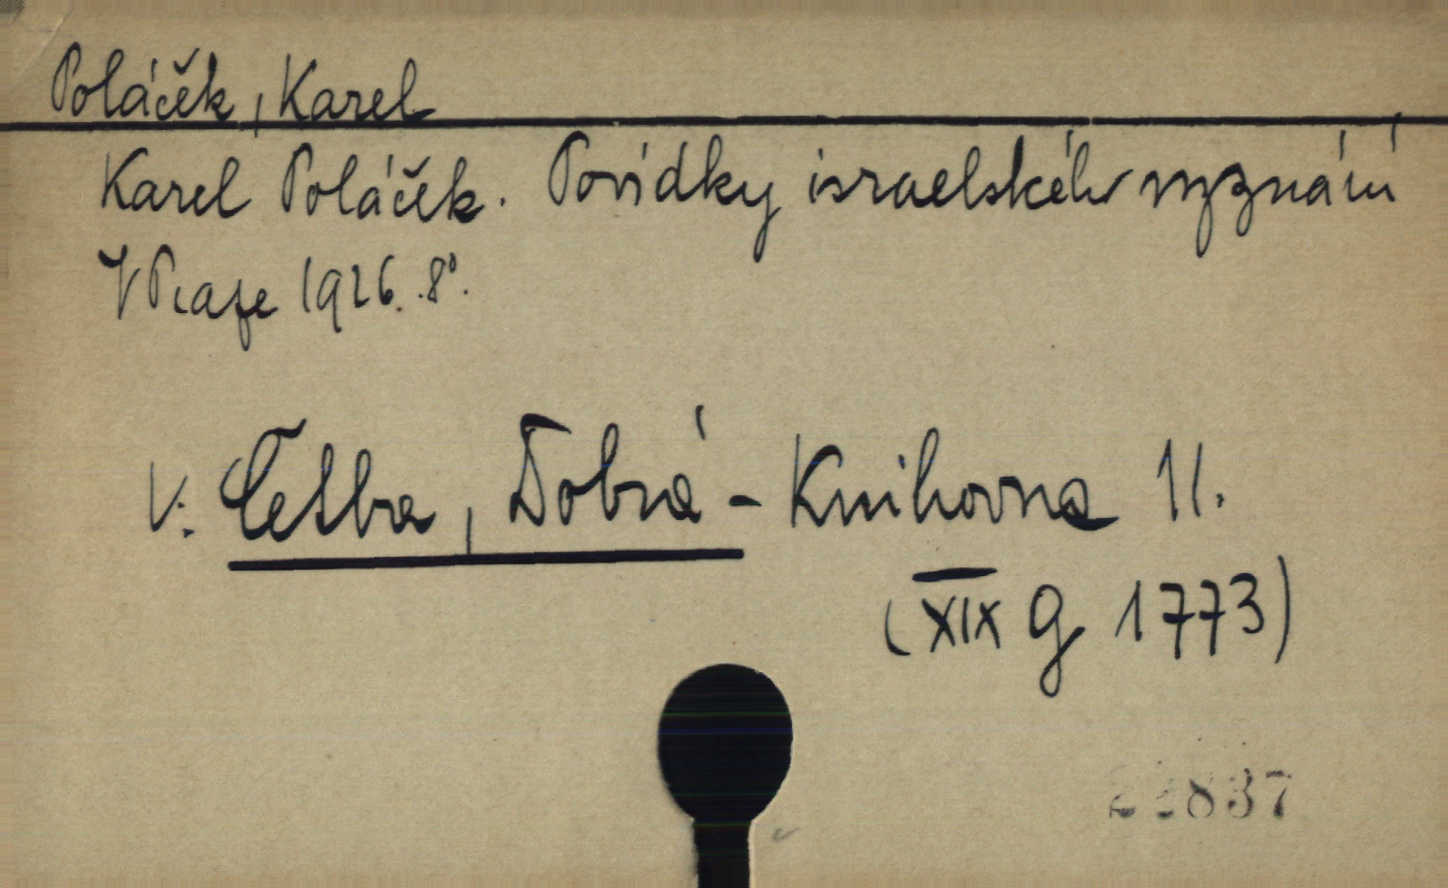 Poláček, Karel
Karel Poláček. Povídky israelského vyznání
V Praze 1926. 8°.
V. Četba, Dobrá - Knihovna 11.
(XIX g 1773)